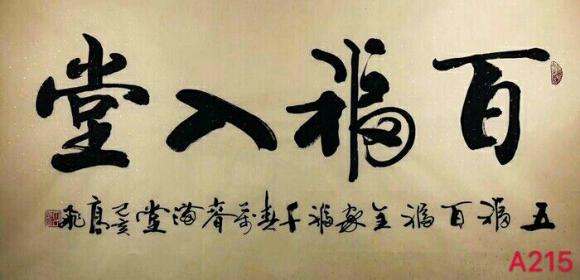 百福入堂
五福百福全家福千春万春满堂己亥高飛
A215